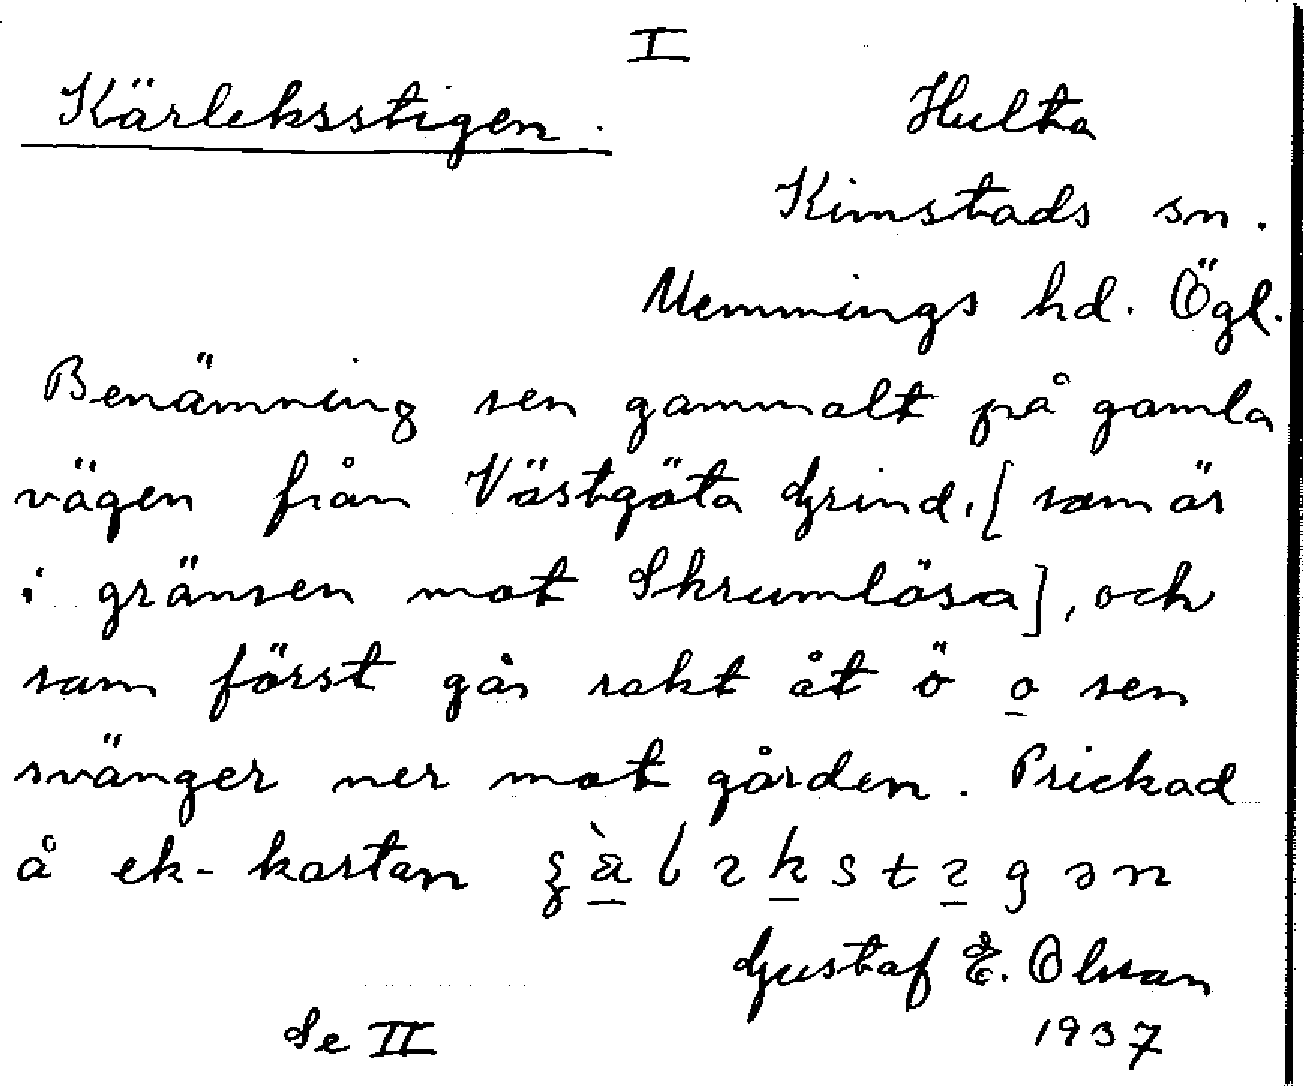 I
Kärleksstigen.
Hulta
Kimstads sn.
Memmings hd. Ögl.
Benämning sen gammalt på gamla
vägen från Västgöta Grind, [som är
i gränsen mot Skrumlösa], och
som först går rakt åt ö o sen
svänger ner mot gården. Prickad
å ek-kartan
Gustaf E. Olsson
1937
Se II